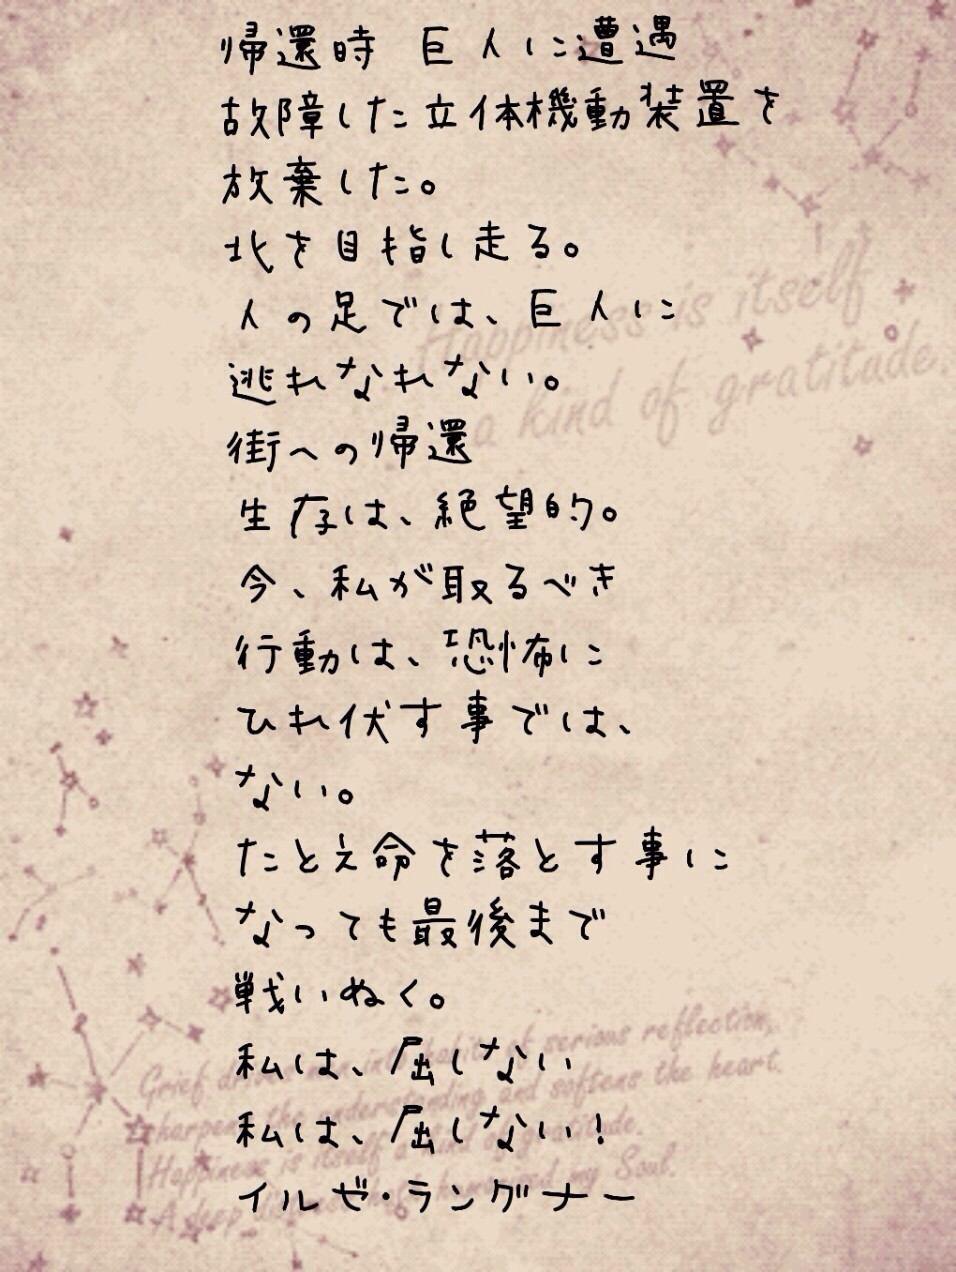 帰還時 巨人に遭遇
故障した立体機動装置を
放棄した。
北を目指し走る。
人の足では、巨人に
Happiness is itself
逃れなれない。
a kind of gratitude.
街への帰還
生存は、絶望的。
今、私が取るべき
行動は、恐怖に
ひれ伏す事では、
ない。
たとえ命を落とす事に
なっても最後まで
戦いぬく。
私は、屈しない
Grief habits of serious reflection,
the understanding and softens the heart.
私は、屈しない!
Happiness is itself a kind of gratitude.
A deep my Soul.
イルゼ・ラングナー